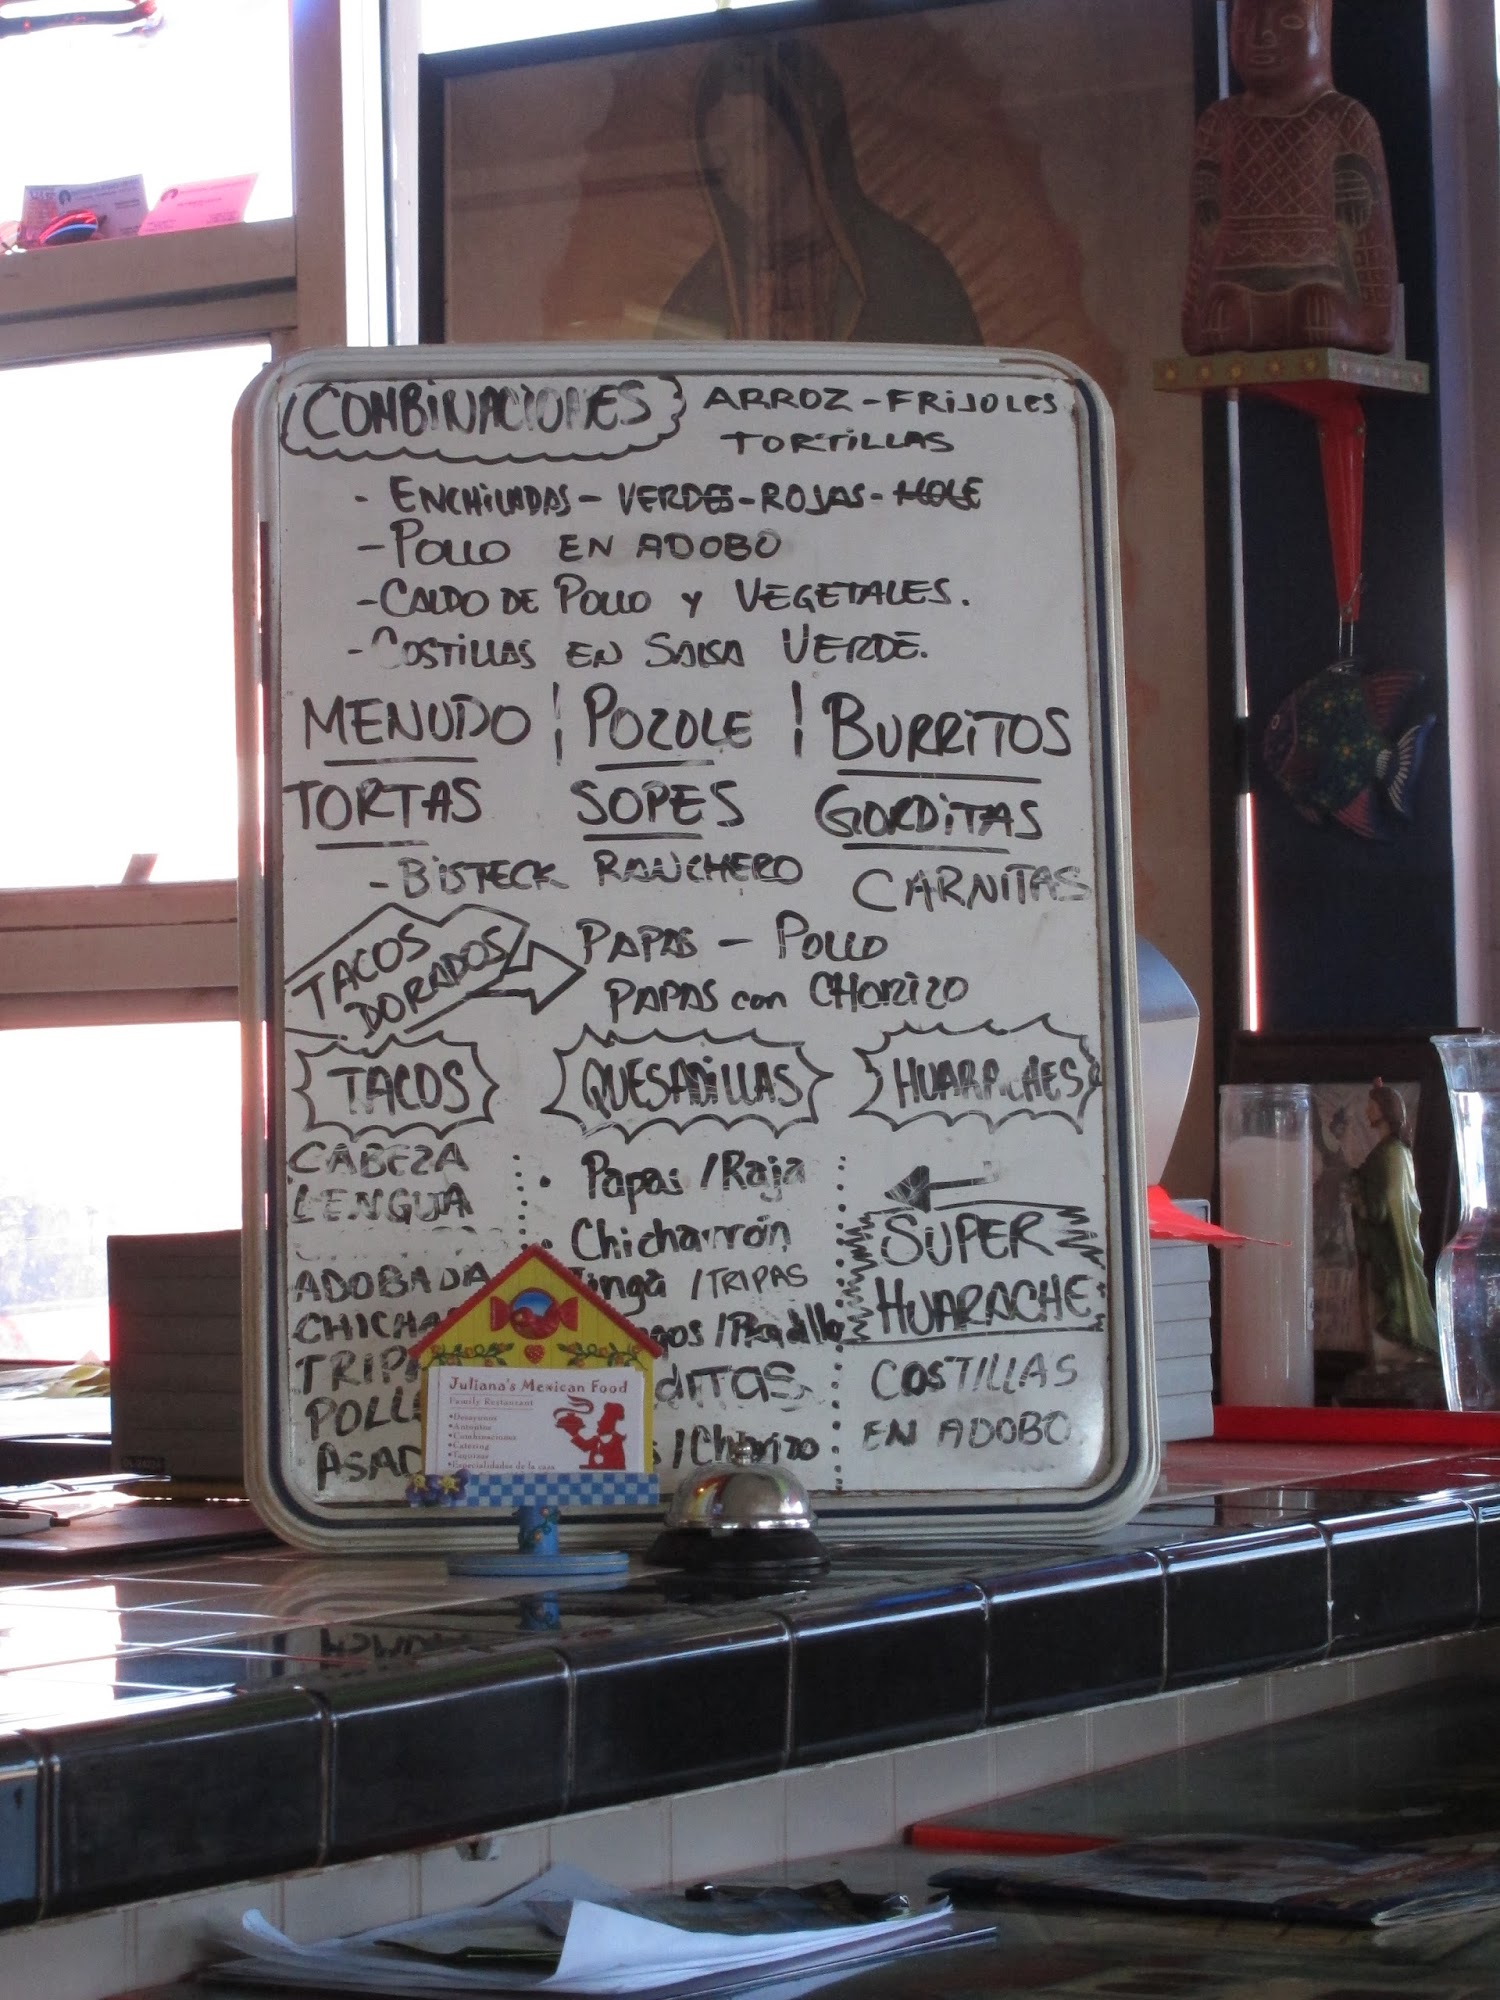 COMBINACIONES ARROZ - FRIJOLES
TORTILLAS
- ENCHILADAS - VERDES - ROJAS - MOLE
- POLLO EN ADOBO
- CALDO DE POLLO Y VEGETALES.
- COSTILLAS EN SALSA VERDE.
MENUDO ¦ POZOLE ¦ BURRITOS
TORTAS SOPES GORDITAS
- BISTECK RANCHERO CARNITAS
TACOS DORADOS
PAPAS - POLLO
PAPAS con CHORIZO
TACOS
CABEZA
LENGUA
ADOBADA
ASAD
QUESADILLAS
• Papas / Raja
• Chicharrón
Tinga / TRIPAS
/ Picadillo
/ Chorizo
HUARACHES
SUPER
HUARACHE
COSTILLAS
EN ADOBO
Juliana's Mexican Food
Family Restaurant
•Desayunos
•Antojitos
•Combinaciones
•Catering
•Taquizas
•Especialidades de la casa